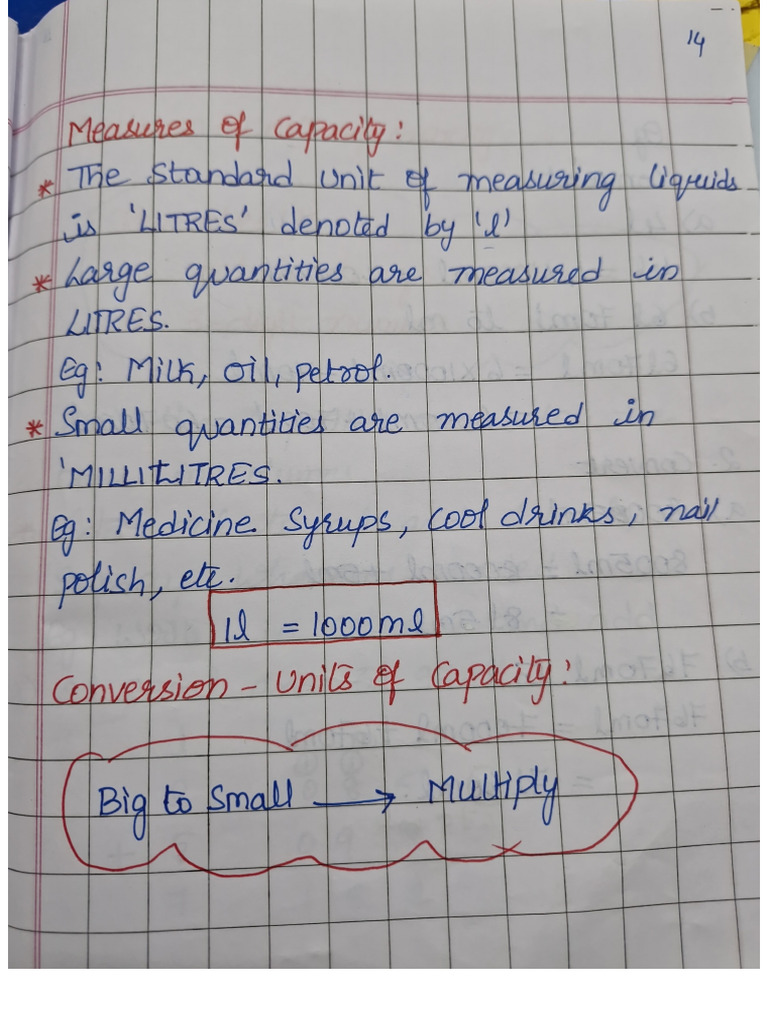 14
Measures of Capacity:
* The Standard Unit of measuring liquids
is 'LITRES' denoted by 'l'
* Large quantities are measured in
LITRES.
Eg: Milk, oil, petrol.
* Small quantities are measured in
'MILLILITRES.
Eg: Medicine Syrups, cool drinks, nail
polish, etc.
1l = 1000ml
Conversion - Units of Capacity:
Big to Small → Multiply